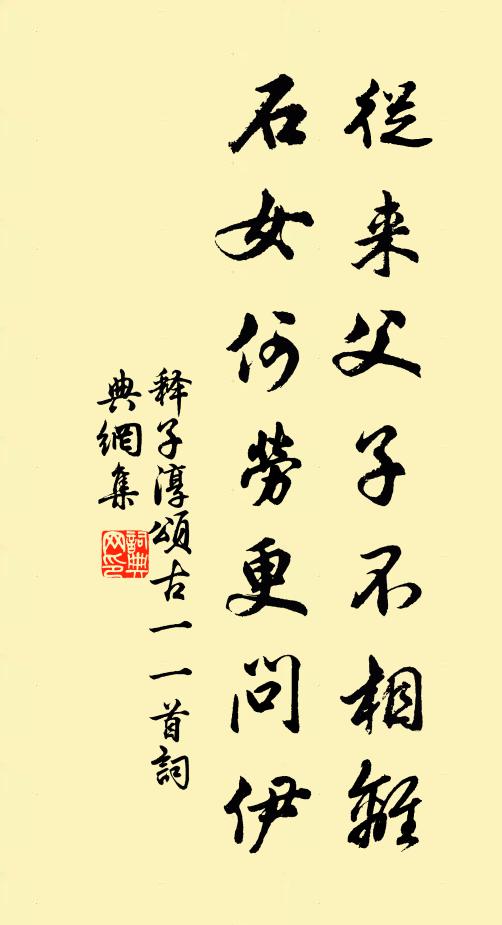 從来父子不相離
石女何勞更問伊
释子淳頌古一一首詞
典網集
詞典
网印